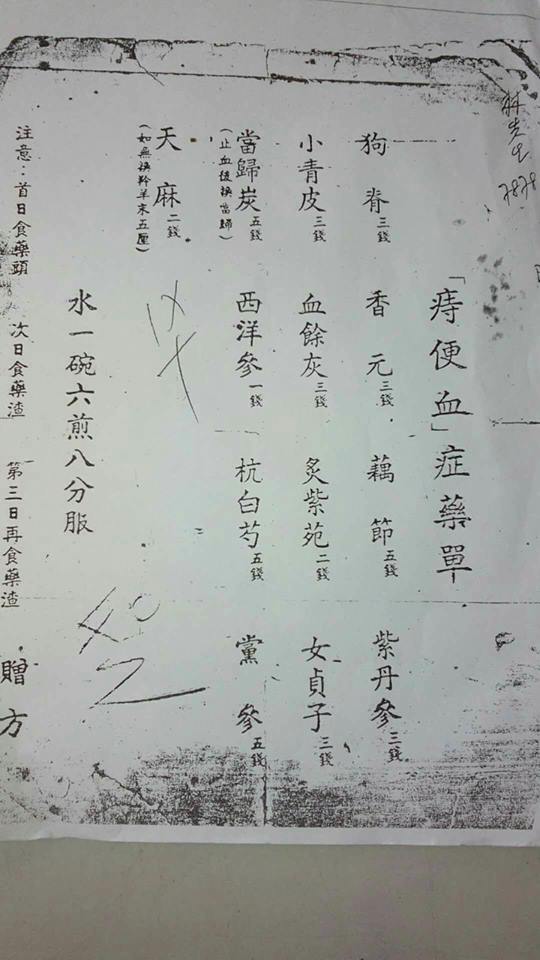 林先生 7878
「痔便血」症藥單
狗脊三錢 香元三錢 藕節五錢 紫丹參三錢
小青皮三錢 血餘灰三錢 炙紫苑二錢 女貞子三錢
當歸炭五錢 西洋參一錢 杭白芍五錢 黨參五錢
(止血後換當歸)
天麻二錢
(如無換羚羊末五厘)
水一碗六煎八分服
注意：首日食藥頭 次日食藥渣 第三日再食藥渣 贈方